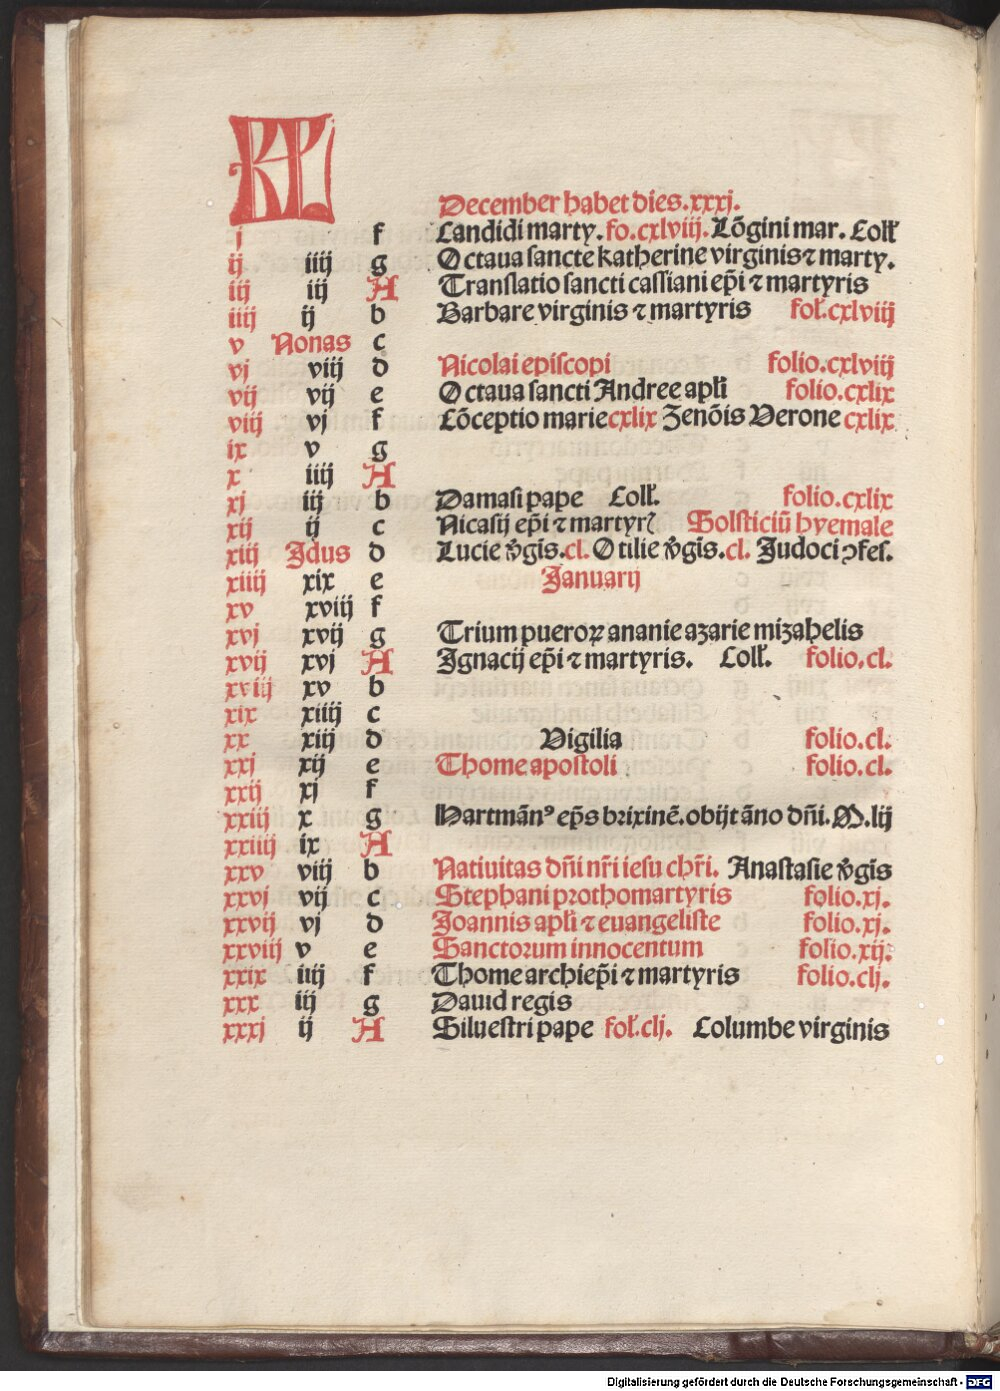 KL
December habet dies.xxxj.
j f Candidi marty. fo.cxlviij. Lõgini mar. Coll'
ij iiij g Octaua sancte katherine virginis ⁊ marty.
iij iij A Translatio sancti cassiani ep̃i ⁊ martyris
iiij ij b Barbare virginis ⁊ martyris fol.cxlviij
v Nonas c
vj viij d Nicolai episcopi folio.cxlviij
vij vij e Octaua sancti Andree apl̃i folio.cxlix
viij vj f Cõceptio marie cxlix Zenõis Verone cxlix
ix v g
x iiij A
xj iij b Damasi pape Coll'. folio.cxlix
xij ij c Nicasij ep̃i ⁊ martyrꝭ Solsticiũ hyemale
xiij Jdus d Lucie v̾gĩs.cl. Otilie v̾gĩs.cl. Judoci ꝯfes.
xiiij xix e Januarij
xv xviij f
xvj xvij g Trium pueroꝝ ananie azarie mizahelis
xvij xvj A Jgnacij ep̃i ⁊ martyris. Coll'. folio.cl.
xviij xv b
xix xiiij c
xx xiij d Vigilia folio.cl.
xxj xij e Thome apostoli folio.cl.
xxij xj f
xxiij x g Hartmãnꝰ ep̃s brixinẽ.obijt ãno dñi.M.lij
xxiiij ix A
xxv viij b Natiuitas dñi nr̃i iesu chr̃i. Anastasie v̾gĩs
xxvj vij c Stephani prothomartyris folio.xj.
xxvij vj d Joannis apl̃i ⁊ euangeliste folio.xj.
xxviij v e Sanctorum innocentum folio.xij.
xxix iiij f Thome archiep̃i ⁊ martyris folio.clj.
xxx iij g Dauid regis
xxxj ij A Siluestri pape fol.clj. Columbe virginis
Digitalisierung gefördert durch die Deutsche Forschungsgemeinschaft - DFG